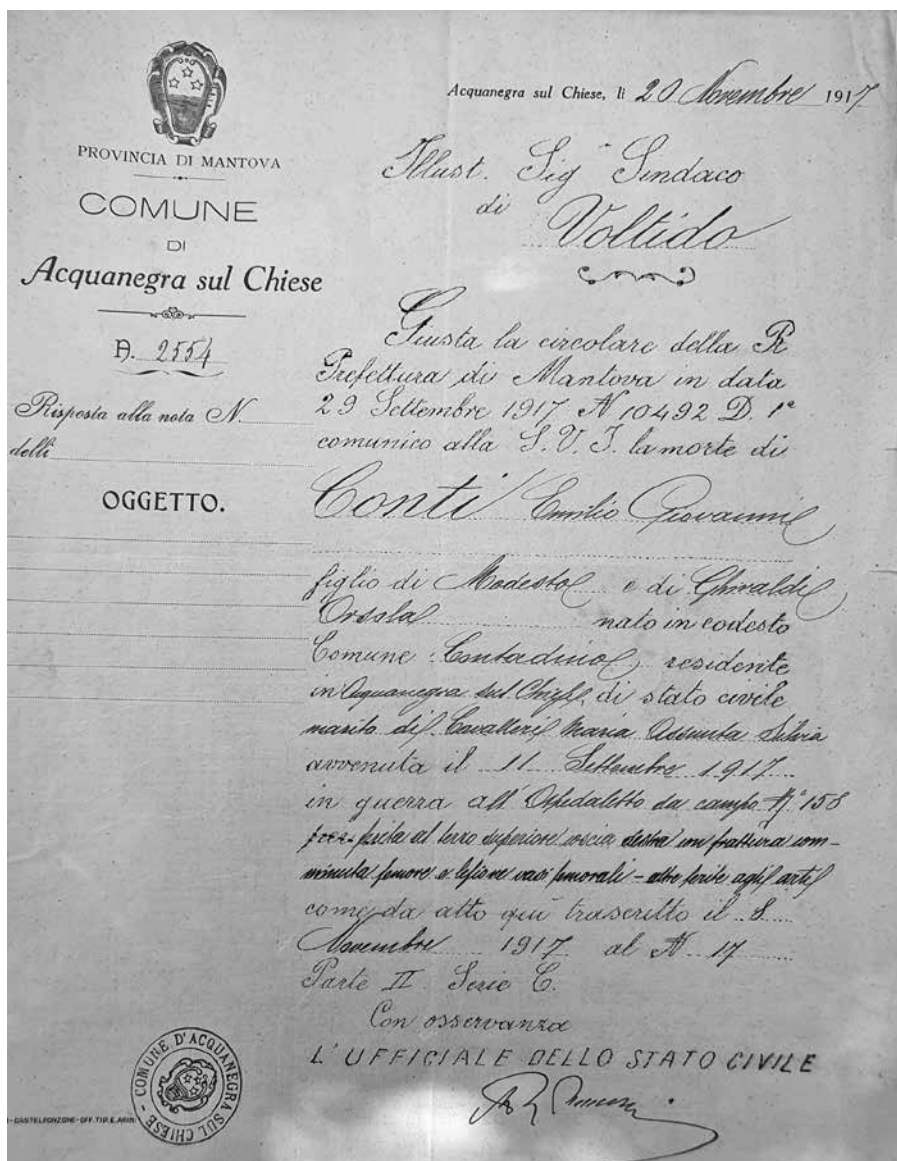 PROVINCIA DI MANTOVA
COMUNE
DI
Acquanegra sul Chiese
A. 2554
Risposta alla nota N.
delli
OGGETTO.
Acquanegra sul Chiese, li 20 Novembre 1917
Illust. Sigr Sindaco
di
Voltido
Giusta la circolare della R
Prefettura di Mantova in data
29 Settembre 1917 N 10492 D. 1a
comunico alla S. V. I. la morte di
Conti Emilio Giovanni
figlio di Modesto e di Ghiraldi
Orsola nato in codesto
Comune Contadino, residente
in Acquanegra sul Chiese, di stato civile
marito di Cavalleri Maria Assunta Silvia
avvenuta il 11 Settembre 1917
in guerra all'Ospedaletto da campo N. 158
ferita al terzo superiore coscia destra con frattura com-
minuta femore e lesione vasi femorali - altre ferite agli arti
come da atto qui trascritto il 8
Novembre 1917 al N 17
Parte II Serie C.
Con osservanza
L'UFFICIALE DELLO STATO CIVILE
COMUNE D'ACQUANEGRA SUL CHIESE
CASTELPONZONE-OFF.TIP.E.ARINI